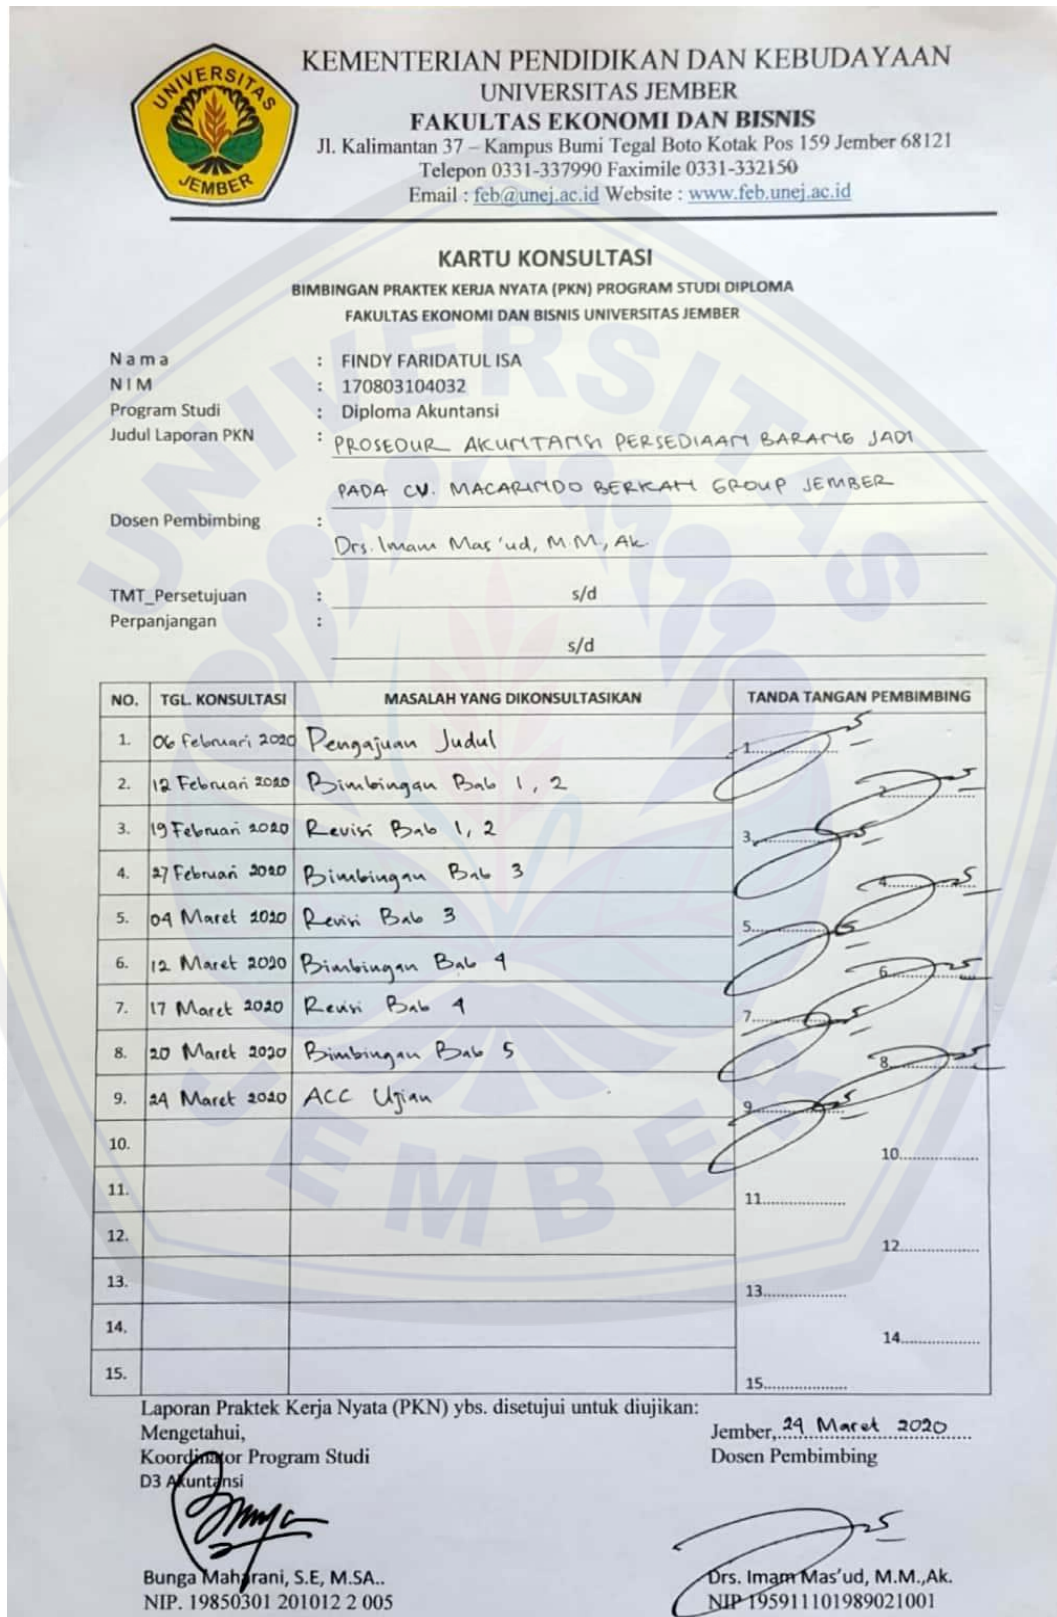 UNIVERSITAS
JEMBER
KEMENTERIAN PENDIDIKAN DAN KEBUDAYAAN
UNIVERSITAS JEMBER
FAKULTAS EKONOMI DAN BISNIS
Jl. Kalimantan 37 – Kampus Bumi Tegal Boto Kotak Pos 159 Jember 68121
Telepon 0331-337990 Faximile 0331-332150
Email : feb@unej.ac.id Website : www.feb.unej.ac.id
KARTU KONSULTASI
BIMBINGAN PRAKTEK KERJA NYATA (PKN) PROGRAM STUDI DIPLOMA
FAKULTAS EKONOMI DAN BISNIS UNIVERSITAS JEMBER
N a m a : FINDY FARIDATUL ISA
N I M : 170803104032
Program Studi : Diploma Akuntansi
Judul Laporan PKN : PROSEDUR AKUNTANSI PERSEDIAAN BARANG JADI
PADA CV. MACARINDO BERKAH GROUP JEMBER
Dosen Pembimbing :
Drs. Imam Mas'ud, M.M, Ak.
TMT_Persetujuan : s/d
Perpanjangan :
s/d
NO. TGL. KONSULTASI MASALAH YANG DIKONSULTASIKAN TANDA TANGAN PEMBIMBING
1. 06 Februari 2020 Pengajuan Judul 1..................
2. 12 Februari 2020 Bimbingan Bab 1, 2 2..................
3. 19 Februari 2020 Revisi Bab 1, 2 3..................
4. 27 Februari 2020 Bimbingan Bab 3 4..................
5. 04 Maret 2020 Revisi Bab 3 5..................
6. 12 Maret 2020 Bimbingan Bab 4 6..................
7. 17 Maret 2020 Revisi Bab 4 7..................
8. 20 Maret 2020 Bimbingan Bab 5 8..................
9. 24 Maret 2020 ACC Ujian 9..................
10. 10..................
11. 11..................
12. 12..................
13. 13..................
14. 14..................
15. 15..................
Laporan Praktek Kerja Nyata (PKN) ybs. disetujui untuk diujikan:
Mengetahui, Jember, 24 Maret 2020
Koordinator Program Studi Dosen Pembimbing
D3 Akuntansi
Bunga Maharani, S.E, M.SA.. Drs. Imam Mas'ud, M.M.,Ak.
NIP. 19850301 201012 2 005 NIP 195911101989021001
UNIVERSITAS JEMBER